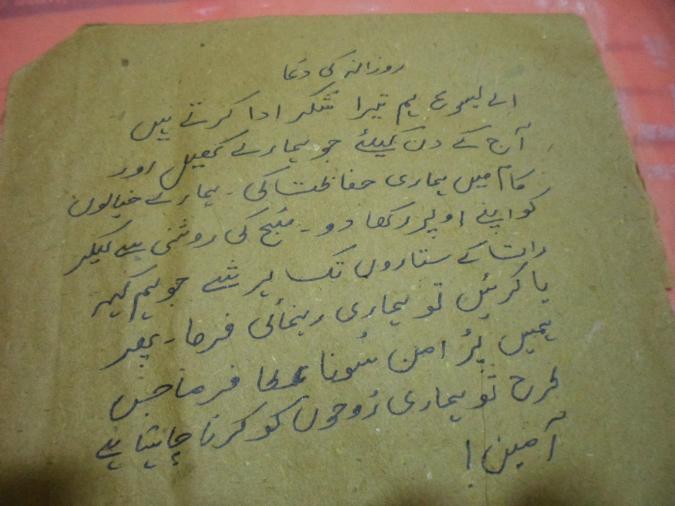 روزانہ کی دعا
اے یسوع ہم تیرا شکر ادا کرتے ہیں
آج کے دن کیلئے جو ہمارے کھیل اور
کام میں ہماری حفاظت کی۔ ہمارے خیالوں
کو اپنے اوپر رکھا دو۔ صُبح کی روشنی سے لیکر
رات کے ستاروں تک ہر شے جو ہم کہہ
یا کریں تو ہماری رہنمائی فرما۔ پھر
ہمیں پُر امن سُونا عطا فرما جس
طرح تو ہماری رُوحوں کو کرنا چاہتا ہے
آمین!